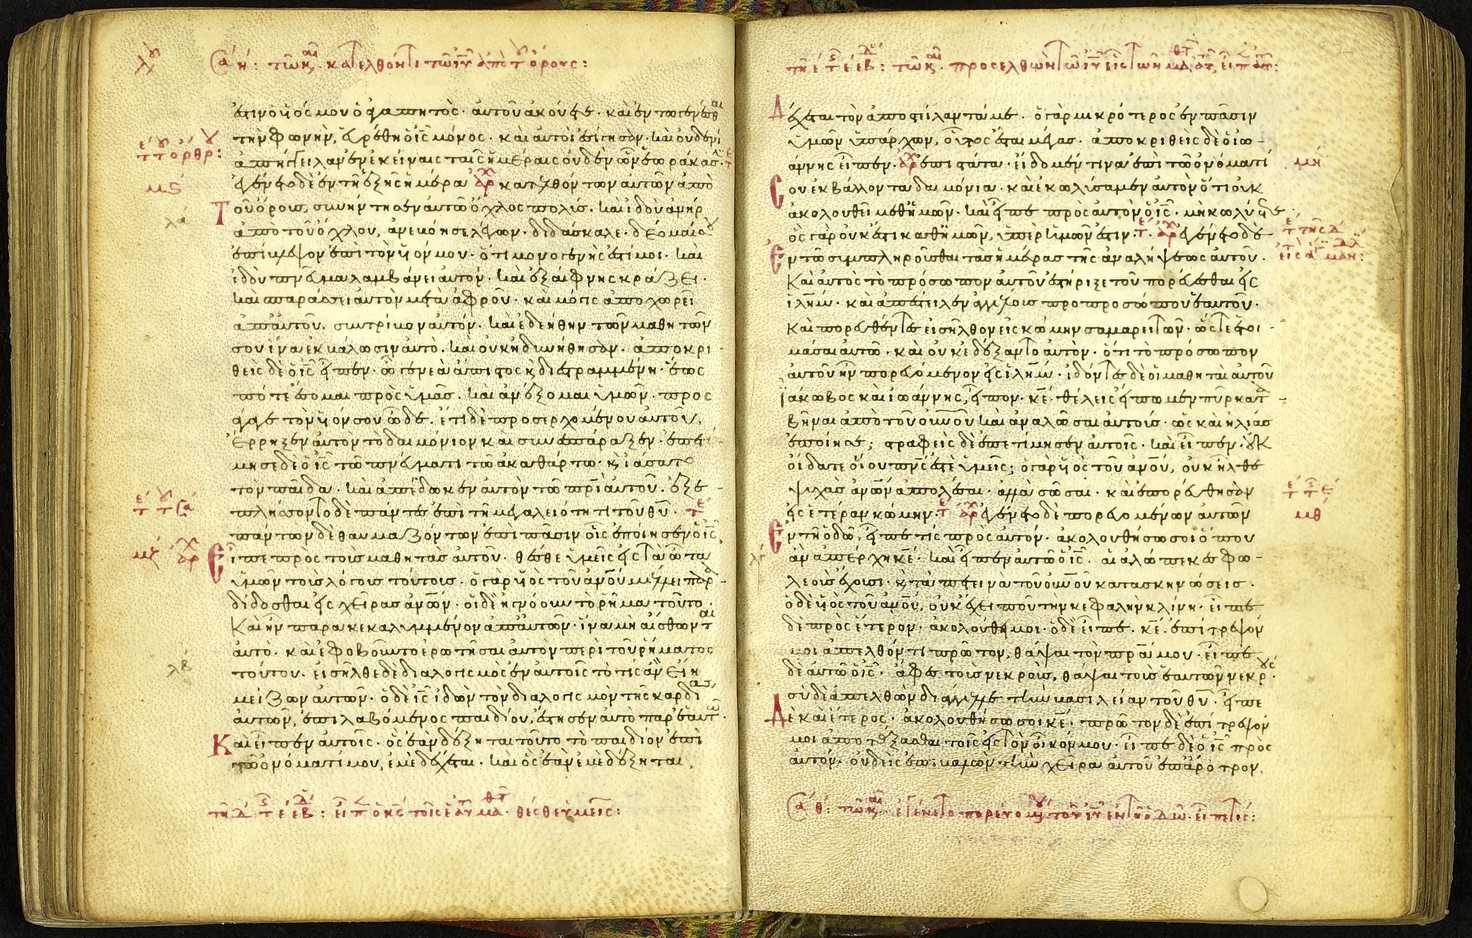 ἐστιν ὁ υἱός μου ὁ ἀγαπητός· αὐτοῦ ἀκούετε· καὶ ἐν τῶ γενέσθαι
τὴν φωνὴν, εὑρέθη ὁ ις μόνος· καὶ αὐτοὶ ἐσίγησαν· καὶ οὐδενὶ
ἀπήγγειλαν ἐν ἐκείναις ταῖς ἡμέραις οὐδὲν ὧν ἑωράκασι·
ἐγένετο δὲ ἐν τῆ ἑξῆς ἡμέρα κατελθόντων αὐτῶν ἀπὸ
τοῦ ὄρους, συνήντησεν αὐτῶ ὄχλος πολύς· καὶ ἰδοὺ ἀνὴρ
ἀπὸ τοῦ ὄχλου, ἀνεβόησε λέγων· διδάσκαλε· δέομαί σου
ἐπίβλεψον ἐπὶ τὸν υἱόν μου· ὅτι μονογενής ἐστί μοι· καὶ
ἰδοὺ πνεῦμα λαμβάνει αὐτόν· καὶ ἐξαίφνης κράζει·
καὶ σπαράσσει αὐτὸν μετὰ ἀφροῦ· καὶ μόγις ἀποχωρεῖ
ἀπ αὐτοῦ, συντρίβον αὐτόν· καὶ ἐδεήθην τῶν μαθητῶν
σου ἵνα ἐκβάλωσιν αὐτό· καὶ οὐκ ἠδυνήθησαν· ἀποκρι
θεὶς δὲ ὁ ις εἶπεν· ὦ γενεὰ ἄπιστος καὶ διεστραμμένη· ἕως
πότε ἔσομαι πρὸς ὑμᾶς· καὶ ἀνέξομαι ὑμῶν· προσ
άγαγε τὸν υἱόν σου ὧδε· ἔτι δὲ προσερχομένου αὐτοῦ,
ἔρρηξεν αὐτὸν τὸ δαιμόνιον καὶ συνεσπάραξεν· ἐπετί
μησε δὲ ὁ ις τῶ πνεύματι τῶ ἀκαθάρτω· καὶ ἰάσατο
τὸν παῖδα· καὶ ἀπέδωκεν αὐτὸν τῶ πρὶ αὐτοῦ· ἐξε
πλήσσοντο δὲ πάντες ἐπὶ τῆ μεγαλειότητι τοῦ θυ·
πάντων δὲ θαυμαζόντων ἐπὶ πᾶσιν οἷς ἐποίησεν ὁ ις,
εἶπε πρὸς τοὺς μαθητὰς αὐτοῦ· θέσθε ὑμεῖς εἰς τὰ ὦτα
ὑμῶν τοὺς λόγους τούτους· ὁ γὰρ υἱὸς τοῦ ανου μέλλει παρα
δίδοσθαι εἰς χεῖρας ανων· οἱ δὲ ἠγνόουν τὸ ρῆμα τοῦτο·
καὶ ἦν παρακεκαλυμμένον ἀπ αὐτῶν· ἵνα μὴ αἴσθωνται
αὐτό· καὶ ἐφοβοῦντο ἐρωτῆσαι αὐτὸν περὶ τοῦ ρήματος
τούτου· εἰσῆλθε δὲ διαλογισμὸς ἐν αὐτοῖς τὸ τίς ἂν εἴη
μείζων αὐτῶν· ὁ δὲ ις ἰδὼν τὸν διαλογισμὸν τῆς καρδίας
αὐτῶν, ἐπιλαβόμενος παιδίου, ἔστησεν αὐτὸ παρ ἑαυτῶ·
καὶ εἶπεν αὐτοῖς· ὃς ἐὰν δέξηται τοῦτο τὸ παιδίον ἐπὶ
τῶ ὀνόματί μου, ἐμὲ δέχεται· καὶ ὃς ἐὰν ἐμὲ δέξηται,
δέχεται τὸν ἀποστείλαντά με· ὁ γὰρ μικρότερος ἐν πᾶσιν
ὑμῶν ὑπάρχων, οὗτος ἔσται μέγας· ἀποκριθεὶς δὲ ὁ ἰω
άννης εἶπεν· ἐπιστάτα· εἴδομέν τινα ἐπὶ τῶ ὀνόματί
σου ἐκβάλλοντα δαιμόνια· καὶ ἐκωλύσαμεν αὐτὸν ὅτι οὐκ
ἀκολουθεῖ μεθ ἡμῶν· καὶ εἶπε πρὸς αὐτὸν ὁ ις· μὴ κωλύετε·
ὃς γὰρ οὐκ ἔστι καθ ἡμῶν, ὑπὲρ ἡμῶν ἐστιν· ἐγένετο δὲ
ἐν τῶ συμπληροῦσθαι τὰς ἡμέρας τῆς ἀναλήψεως αὐτοῦ·
καὶ αὐτὸς τὸ πρόσωπον αὐτοῦ ἐστήριξε τοῦ πορεύεσθαι εἰς
ιλημ· καὶ ἀπέστειλεν ἀγγέλους πρὸ προσώπου ἑαυτοῦ·
καὶ πορευθέντες εἰσῆλθον εἰς κώμην σαμαρειτῶν· ὥστε ἑτοι
μάσαι αὐτῶ· καὶ οὐκ ἐδέξαντο αὐτόν· ὅτι τὸ πρόσωπον
αὐτοῦ ἦν πορευόμενον εἰς ιλημ· ἰδόντες δὲ οἱ μαθηταὶ αὐτοῦ
ἰάκωβος καὶ ἰωάννης, εἶπον· κε· θέλεις εἴπωμεν πῦρ κατα
βῆναι ἀπὸ τοῦ ουνου καὶ ἀναλῶσαι αὐτούς· ὡς καὶ ἠλίας
ἐποίησε; στραφεὶς δὲ ἐπετίμησεν αὐτοῖς· καὶ εἶπεν· οὐκ
οἴδατε οἵου πνς ἐστε ὑμεῖς; ὁ γὰρ υἱὸς τοῦ ανου, οὐκ ἦλθε
ψυχὰς ανων ἀπολέσαι· ἀλλὰ σῶσαι· καὶ ἐπορεύθησαν
εἰς ἑτέραν κώμην· ἐγένετο δὲ πορευομένων αὐτῶν
ἐν τῆ ὁδῶ, εἶπέ τις πρὸς αὐτόν· ἀκολουθήσω σοι ὅπου
ἂν ἀπέρχη κε· καὶ εἶπεν αὐτῶ ὁ ις· αἱ ἀλώπεκες φω
λεοὺς ἔχουσι· καὶ τὰ πετεινὰ τοῦ ουνου κατασκηνώσεις·
ὁ δὲ υἱὸς τοῦ ανου, οὐκ ἔχει ποῦ τὴν κεφαλὴν κλίνη· εἶπε
δὲ πρὸς ἕτερον· ἀκολούθει μοι· ὁ δὲ εἶπε· κε· ἐπίτρεψόν
μοι ἀπελθόντι πρῶτον, θάψαι τὸν πρα μου· εἶπε
δὲ αὐτῶ ὁ ις· ἄφες τοὺς νεκροὺς, θάψαι τοὺς ἑαυτῶν νεκρούς·
σὺ δὲ ἀπελθὼν διάγγελε τὴν βασιλείαν τοῦ θυ· εἶπε
δὲ καὶ ἕτερος· ἀκολουθήσω σοι κε· πρῶτον δὲ ἐπίτρεψόν
μοι ἀποτάξασθαι τοῖς εἰς τὸν οἶκόν μου· εἶπε δὲ ὁ ις πρὸς
αὐτόν· οὐδεὶς ἐπιβαλὼν τὴν χεῖρα αὐτοῦ ἐπ ἄροτρον,